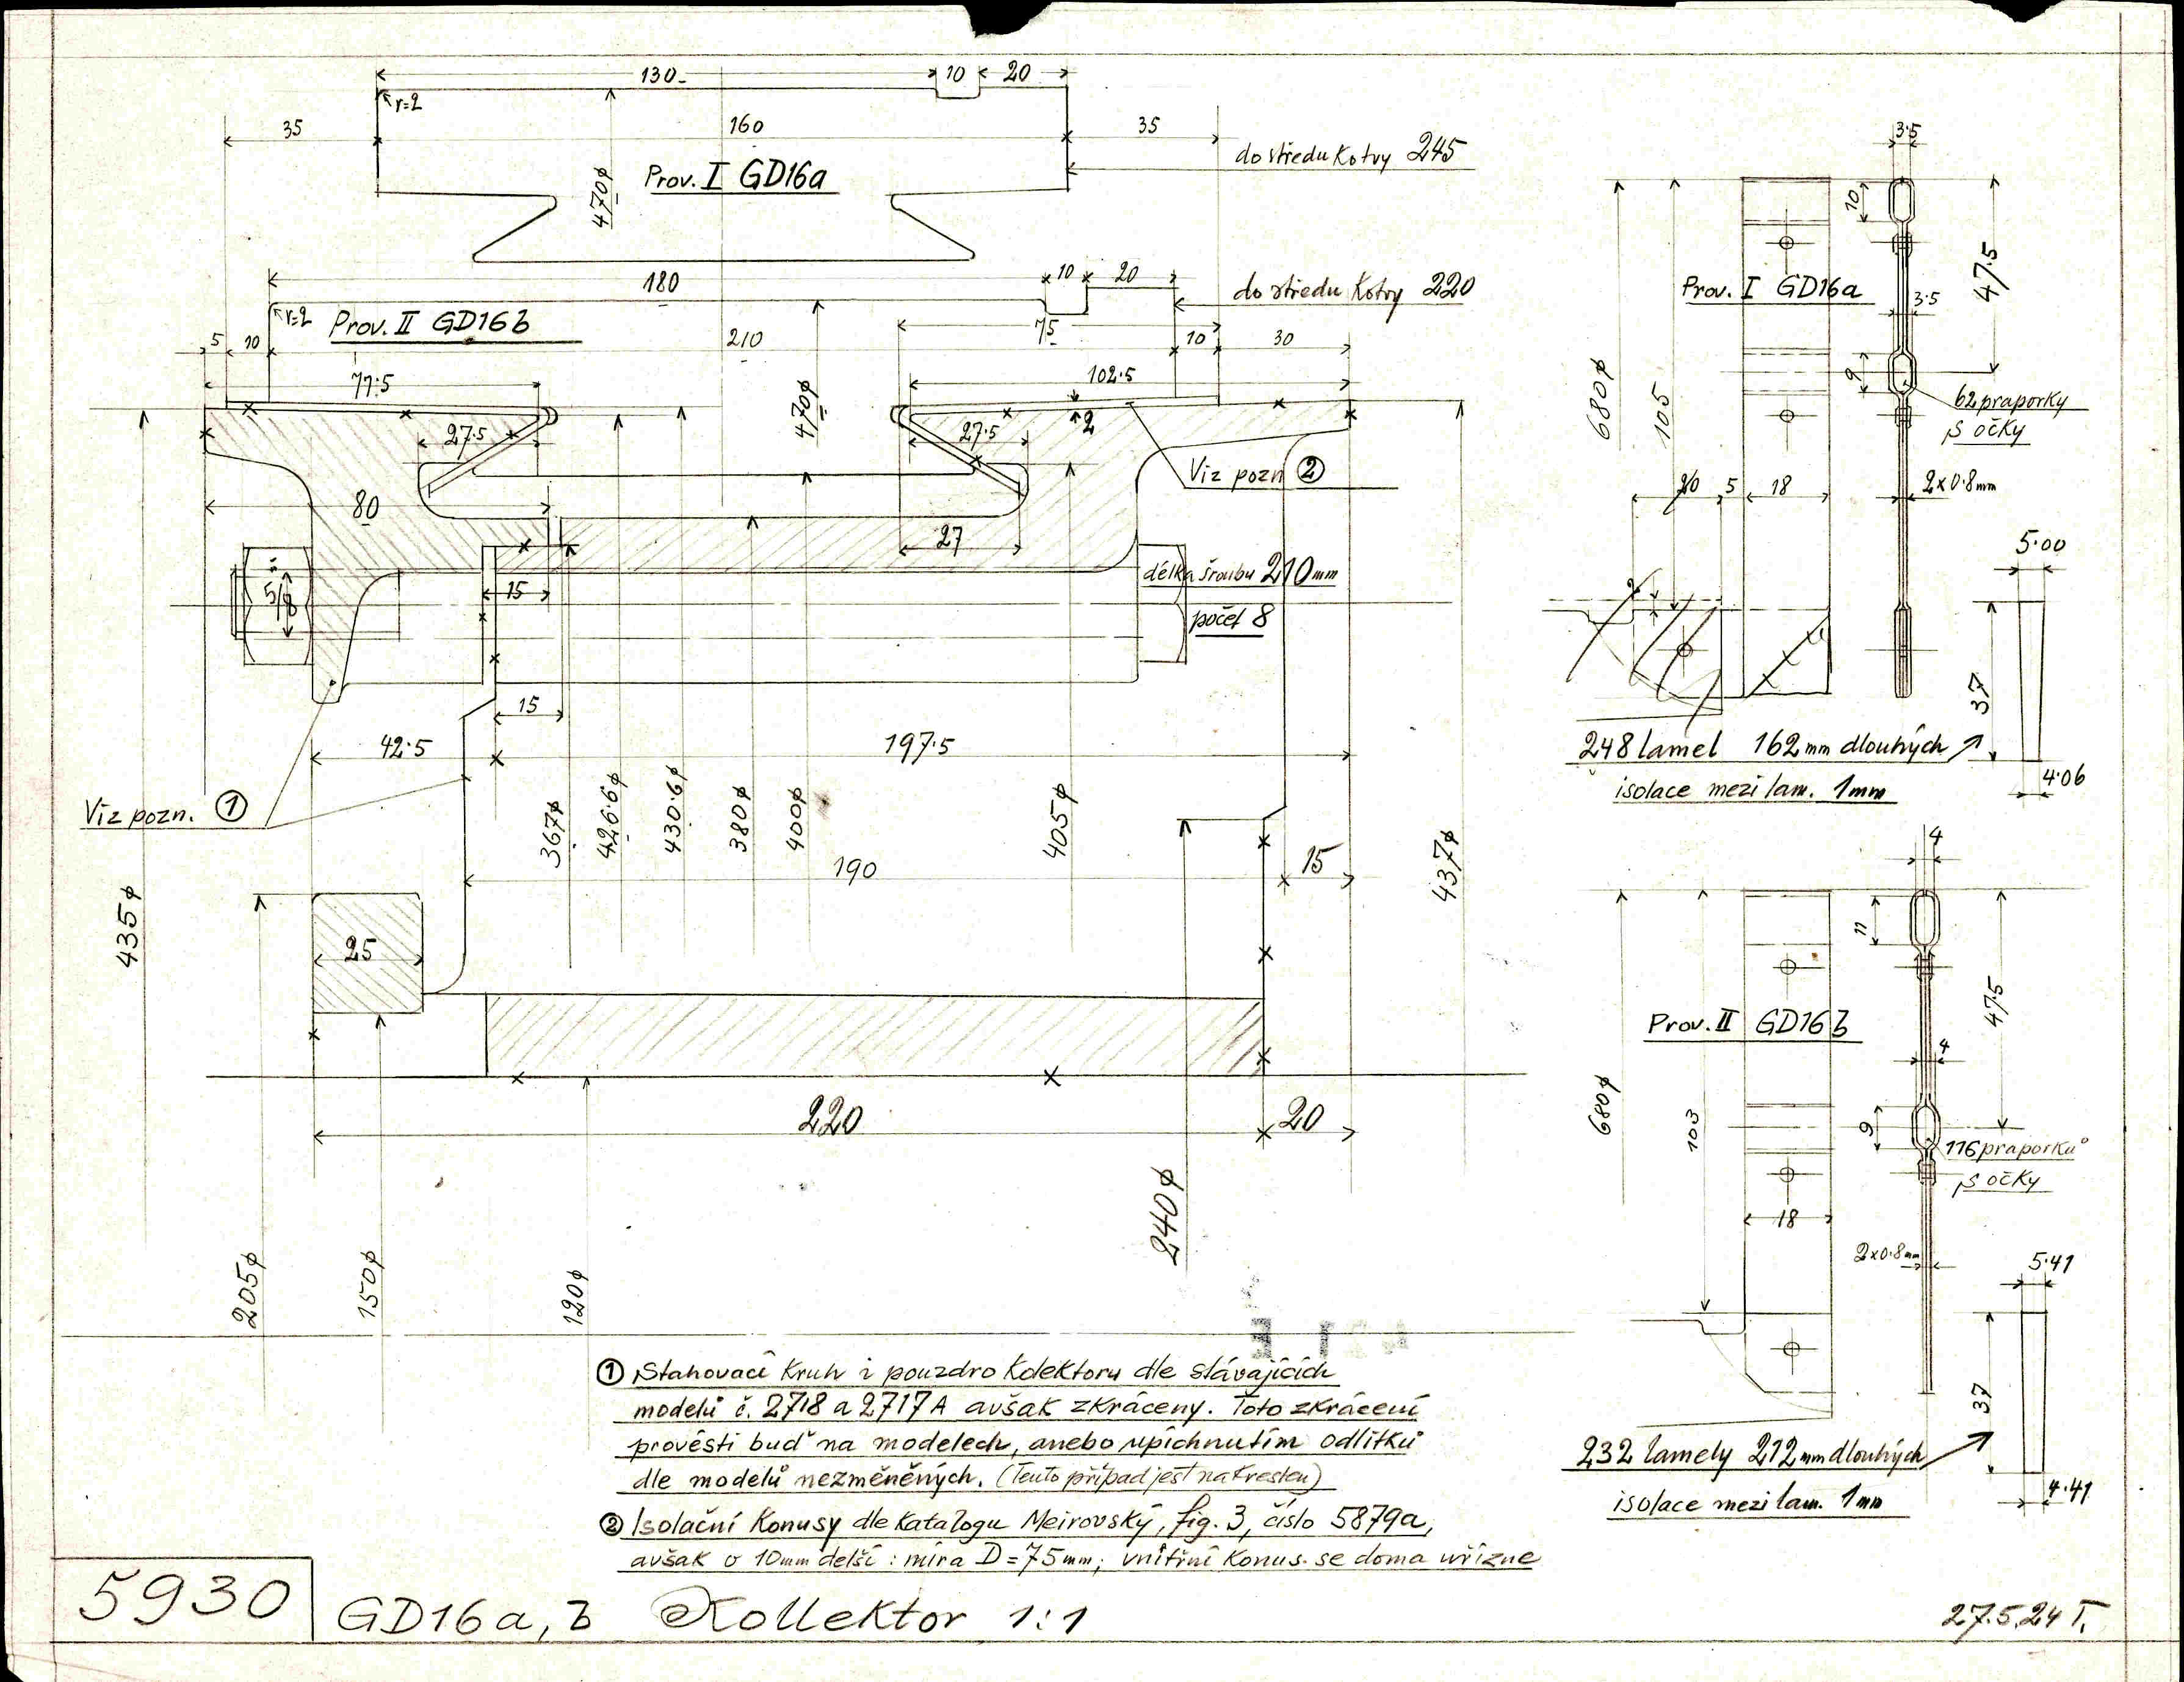 130
10
20
r=2
35
160
35
do středu Kotvy 245
Prov. I GD16a
470φ
180
10
20
do středu Kotvy 220
r=2
Prov. II GD16b
75
5
10
210
10
30
77·5
102·5
470φ
2
27·5
27·5
Viz pozn. ②
80
27
5/8"
15
délka šroubu 210mm
počet 8
15
42·5
197·5
Viz pozn. ①
367φ
426·6φ
430·6φ
380φ
400φ
405φ
437φ
190
15
435φ
25
220
20
240φ
205φ
150φ
120φ
3·5
10
47·5
Prov. I GD16a
3·5
680φ
105
9
62 praporky
s očky
20
5
18
2x0·8mm
5·00
2
37
248 lamel 162mm dlouhých
isolace mezi lam. 1mm
4·06
4
11
47·5
Prov. II GD16b
4
680φ
103
9
116 praporků
s očky
18
2x0·8mm
5·41
37
232 lamely 212mm dlouhých
isolace mezi lam. 1mm
4·41
① Stahovací Kruh i pouzdro Kolektoru dle stávajících
modelů č. 2718 a 2717A avšak zkráceny. Toto zkrácení
provésti buď na modelech, anebo upíchnutím odlitků
dle modelů nezměněných. (Tento případ jest nakreslen)
② Isolační Konusy dle Katalogu Meirovský, fig. 3, číslo 5879a,
avšak o 10mm delší : míra D=75mm; vnitřní Konus. se doma uřízne
5930
GD16a, b Kollektor 1:1
27.5.24 T.